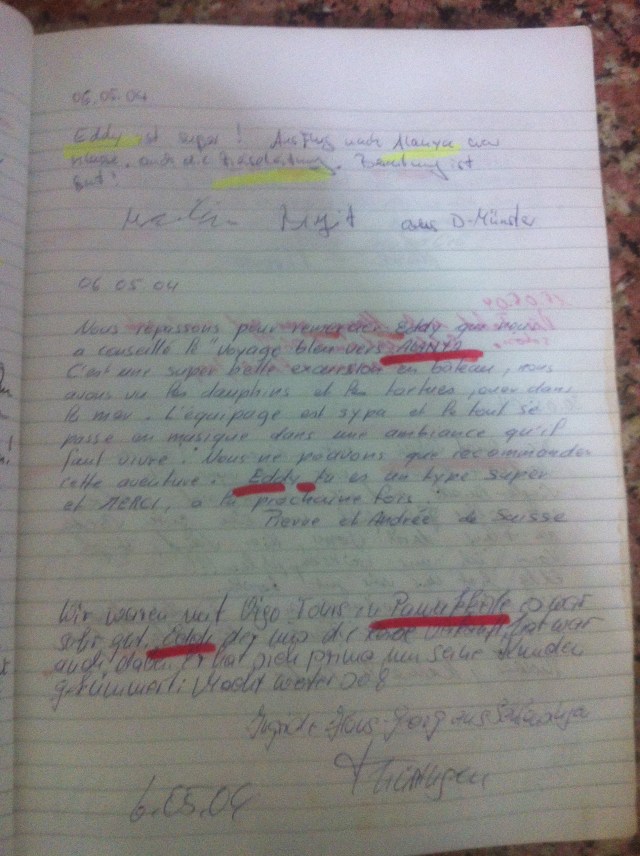 06.05.04
Eddy ist super! Ausflug nach Alanya war
auch die Beratung ist
gut!
Birgit aus D-Münster
06 05 04
Nous repassons pour remercier Eddy que nous
a conseillé le "voyage bleu vers ALANYA
C'est une super belle excursion en bateau, nous
avons vu les dauphins et les tortues, nager dans
la mer. L'équipage est sypa et le tout se
passe en musique dans une ambiance qu'il
faut vivre. Nous ne pouvons que recommander
cette aventure. Eddy tu es un type super
et MERCI, a la prochaine fois!
Pierre et Andrée de Suisse
Wir waren mit Vigo Tours in Pamukkale es war
sehr gut. Eddy der uns die verkauft hat war
auch dabei. Er hat sich prima um seine Kunden
gekümmert. Macht weiter so
Ingrid + Hans-Georg aus
Thüringen
6.05.04